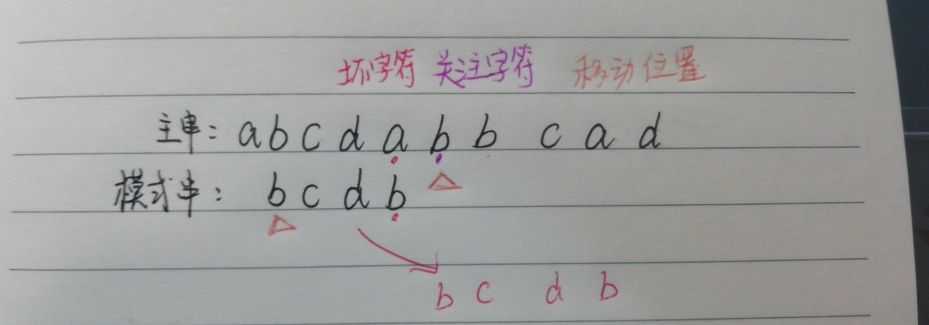 坏字符 关注字符 移动位置
主串: a b c d a b b c a d
模式串: b c d b
b c d b